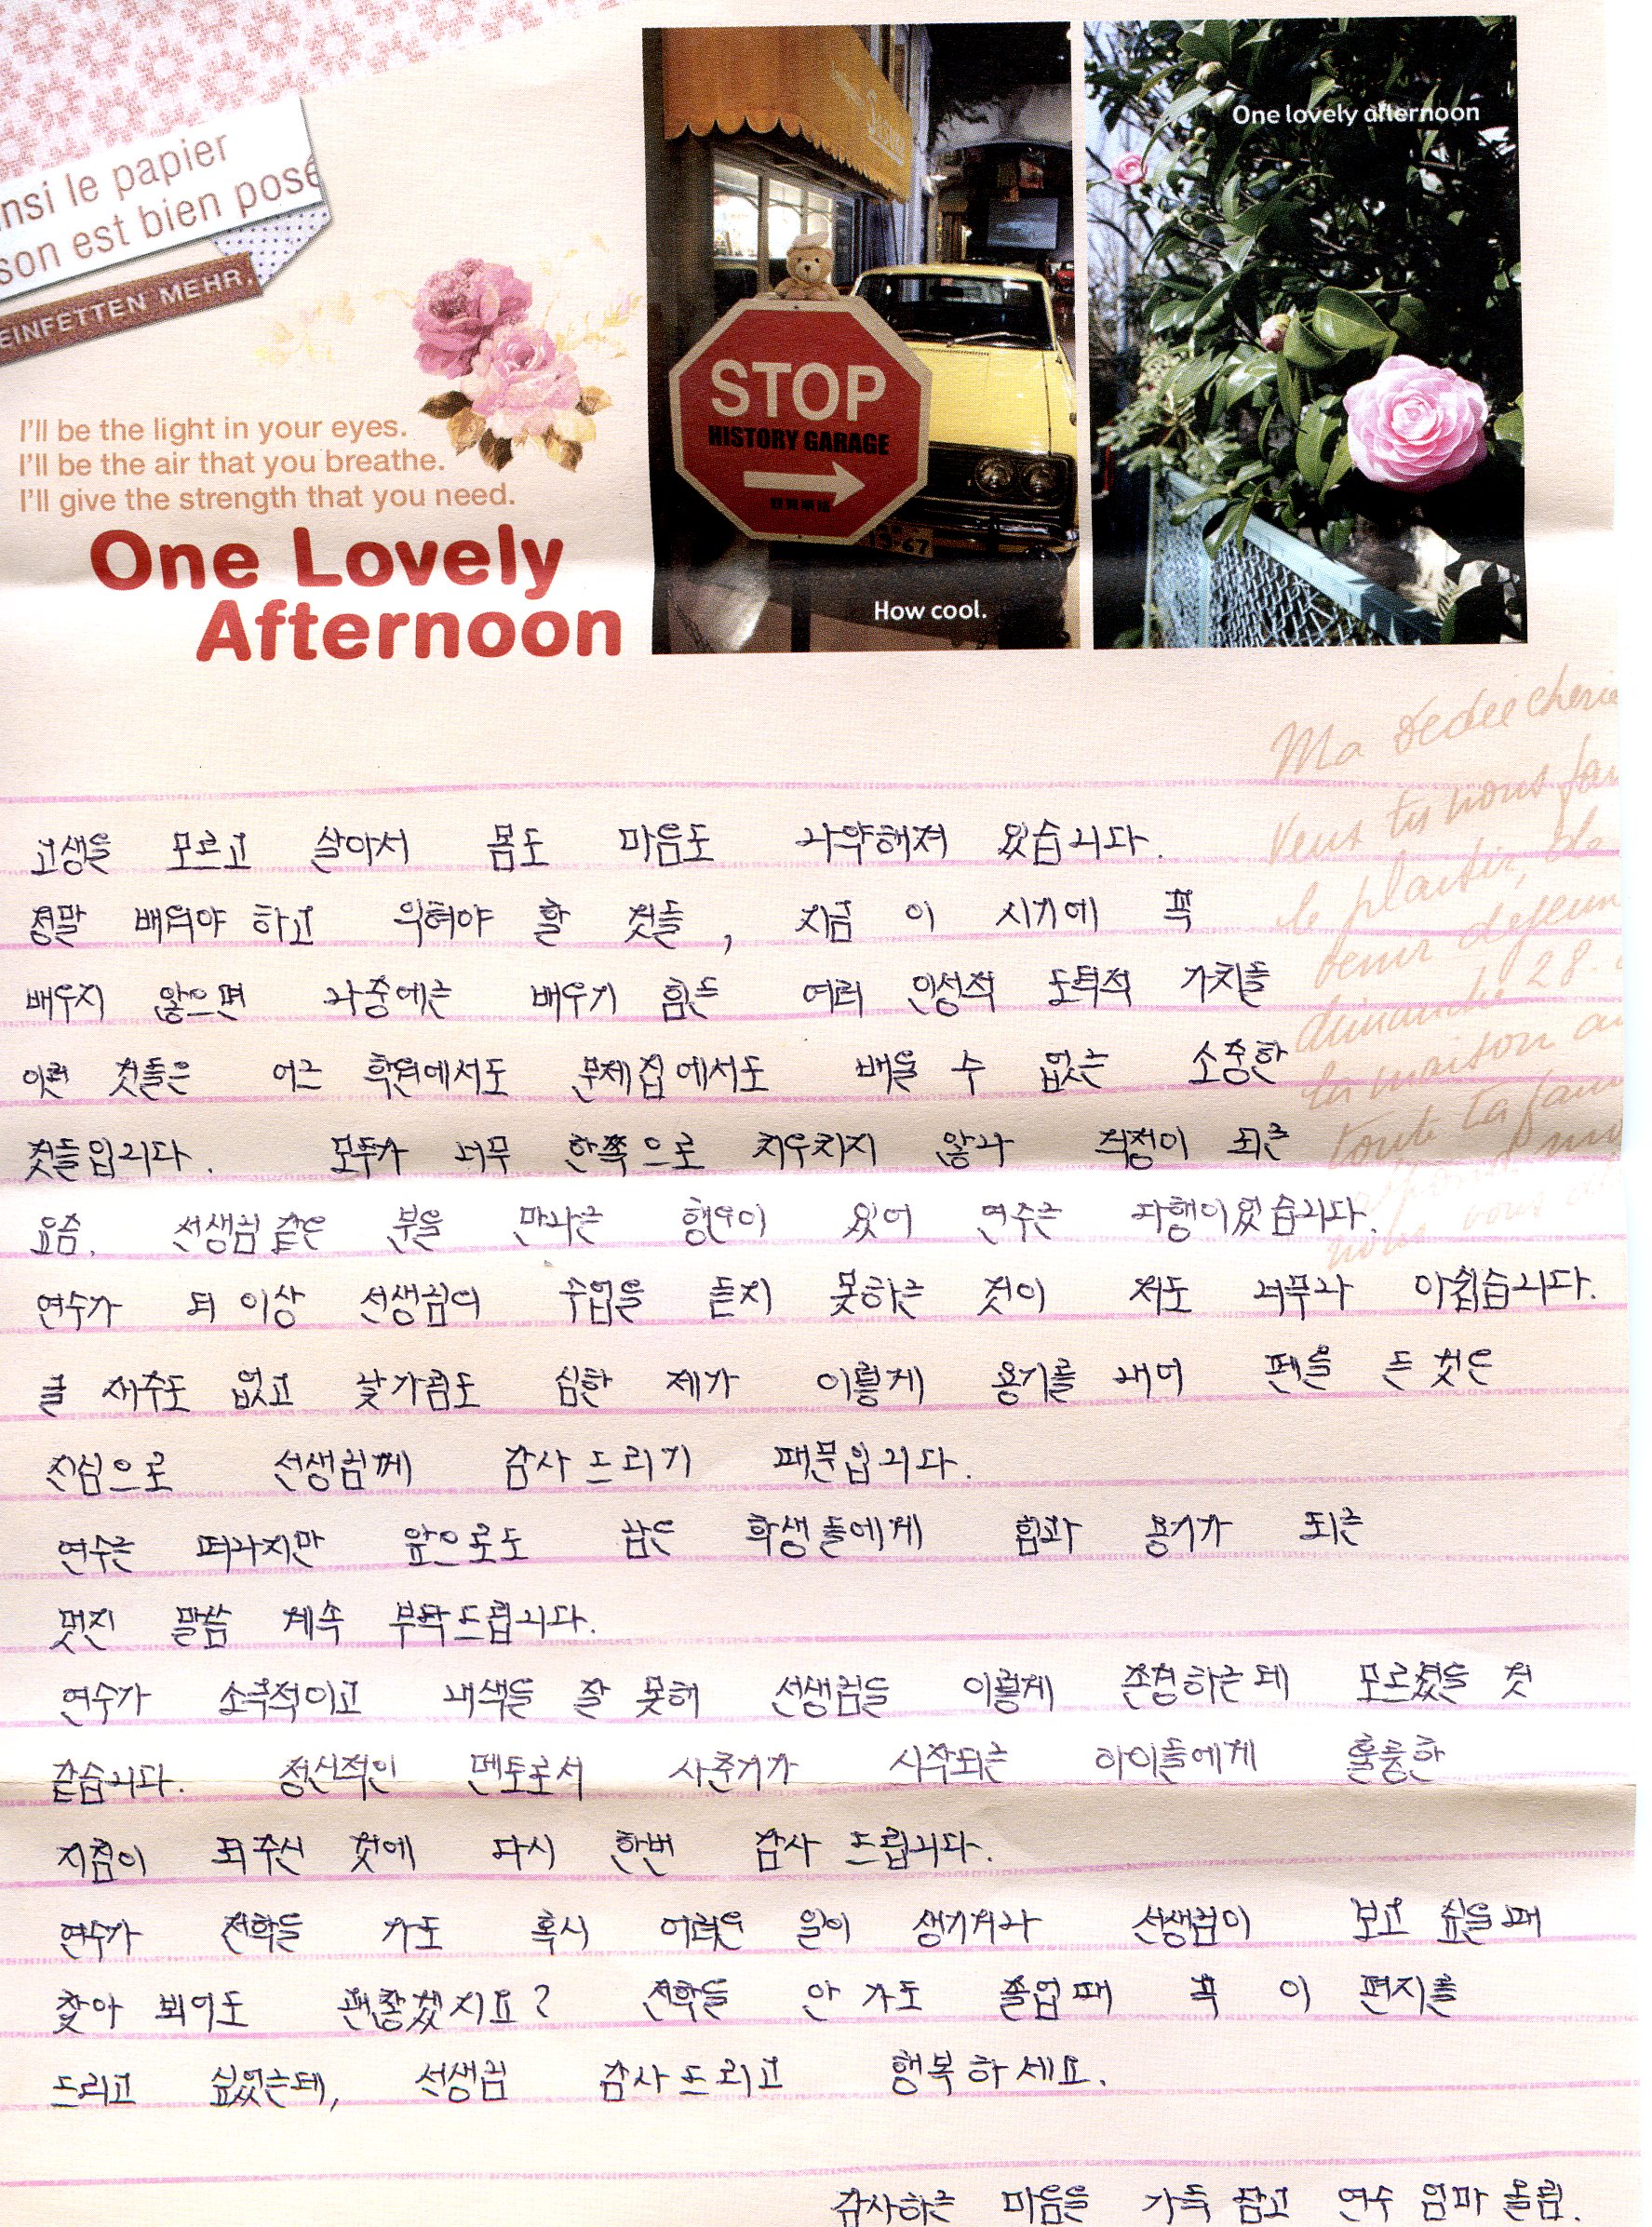 nsi le papier
son est bien posé
EINFETTEN MEHR.
I'll be the light in your eyes.
I'll be the air that you breathe.
I'll give the strength that you need.
One Lovely
Afternoon
STOP
HISTORY GARAGE
How cool.
One lovely afternoon
Ma cherie
Veux tu nous
le plaisir, de
venir dejeun
dimanche 28
la maison
toute ta fam
고생을 모르고 살아서 몸도 마음도 나약해져 있습니다.
정말 배워야 하고 익혀야 할 것들, 지금 이 시기에 꼭
배우지 않으면 나중에는 배우기 힘든 여러 인성적 도덕적 가치들
이런 것들은 어느 학원에서도 문제집에서도 배울 수 없는 소중한
것들입니다. 모두가 너무 한쪽으로 치우치지 않나 걱정이 되는
요즘. 선생님같은 분을 만나는 행운이 있어 연수는 다행이었습니다.
연수가 더 이상 선생님의 수업을 듣지 못하는 것이 저도 너무나 아쉽습니다.
글 재주도 없고 낯가림도 심한 제가 이렇게 용기를 내어 펜을 든 것은
진심으로 선생님께 감사드리기 때문입니다.
연수는 떠나지만 앞으로도 남은 학생들에게 힘과 용기가 되는
멋진 말씀 계속 부탁드립니다.
연수가 소극적이고 내색을 잘 못해 선생님을 이렇게 존경하는데 모르셨을 것
같습니다. 정신적인 멘토로서 사춘기가 시작되는 아이들에게 훌륭한
지침이 되주신 것에 다시 한번 감사 드립니다.
연수가 전학을 가도 혹시 어려운 일이 생기거나 선생님이 보고 싶을때
찾아 뵈어도 괜찮겠지요? 전학을 안 가도 졸업때 꼭 이 편지를
드리고 싶었는데, 선생님 감사드리고 행복하세요.
감사하는 마음을 가득 담고 연수 엄마 올림.